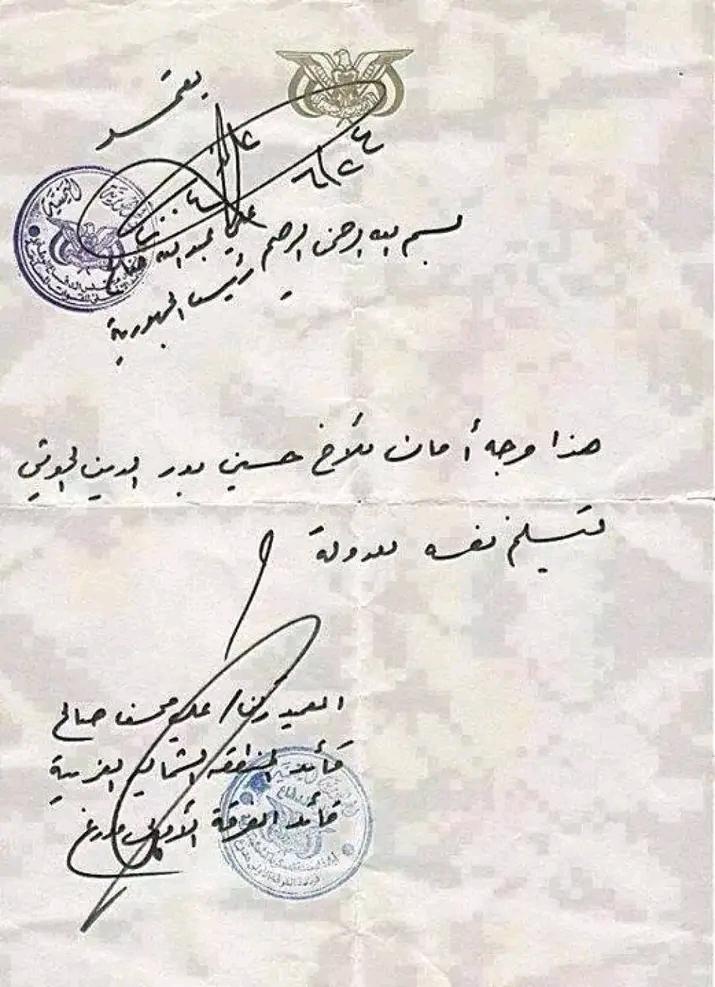 يعتمد
٢٤/٦
٢٠٠٤
بسم الله الرحمن الرحيم
علي عبدالله صالح
رئيس الجمهورية
هذا وجه أمان للأخ حسين بدر الدين الحوثي
لتسليم نفسه للدولة
العميد ركن/ علي محسن صالح
قائد المنطقة الشمالية الغربية
قائد الفرقة الأولى مدرع